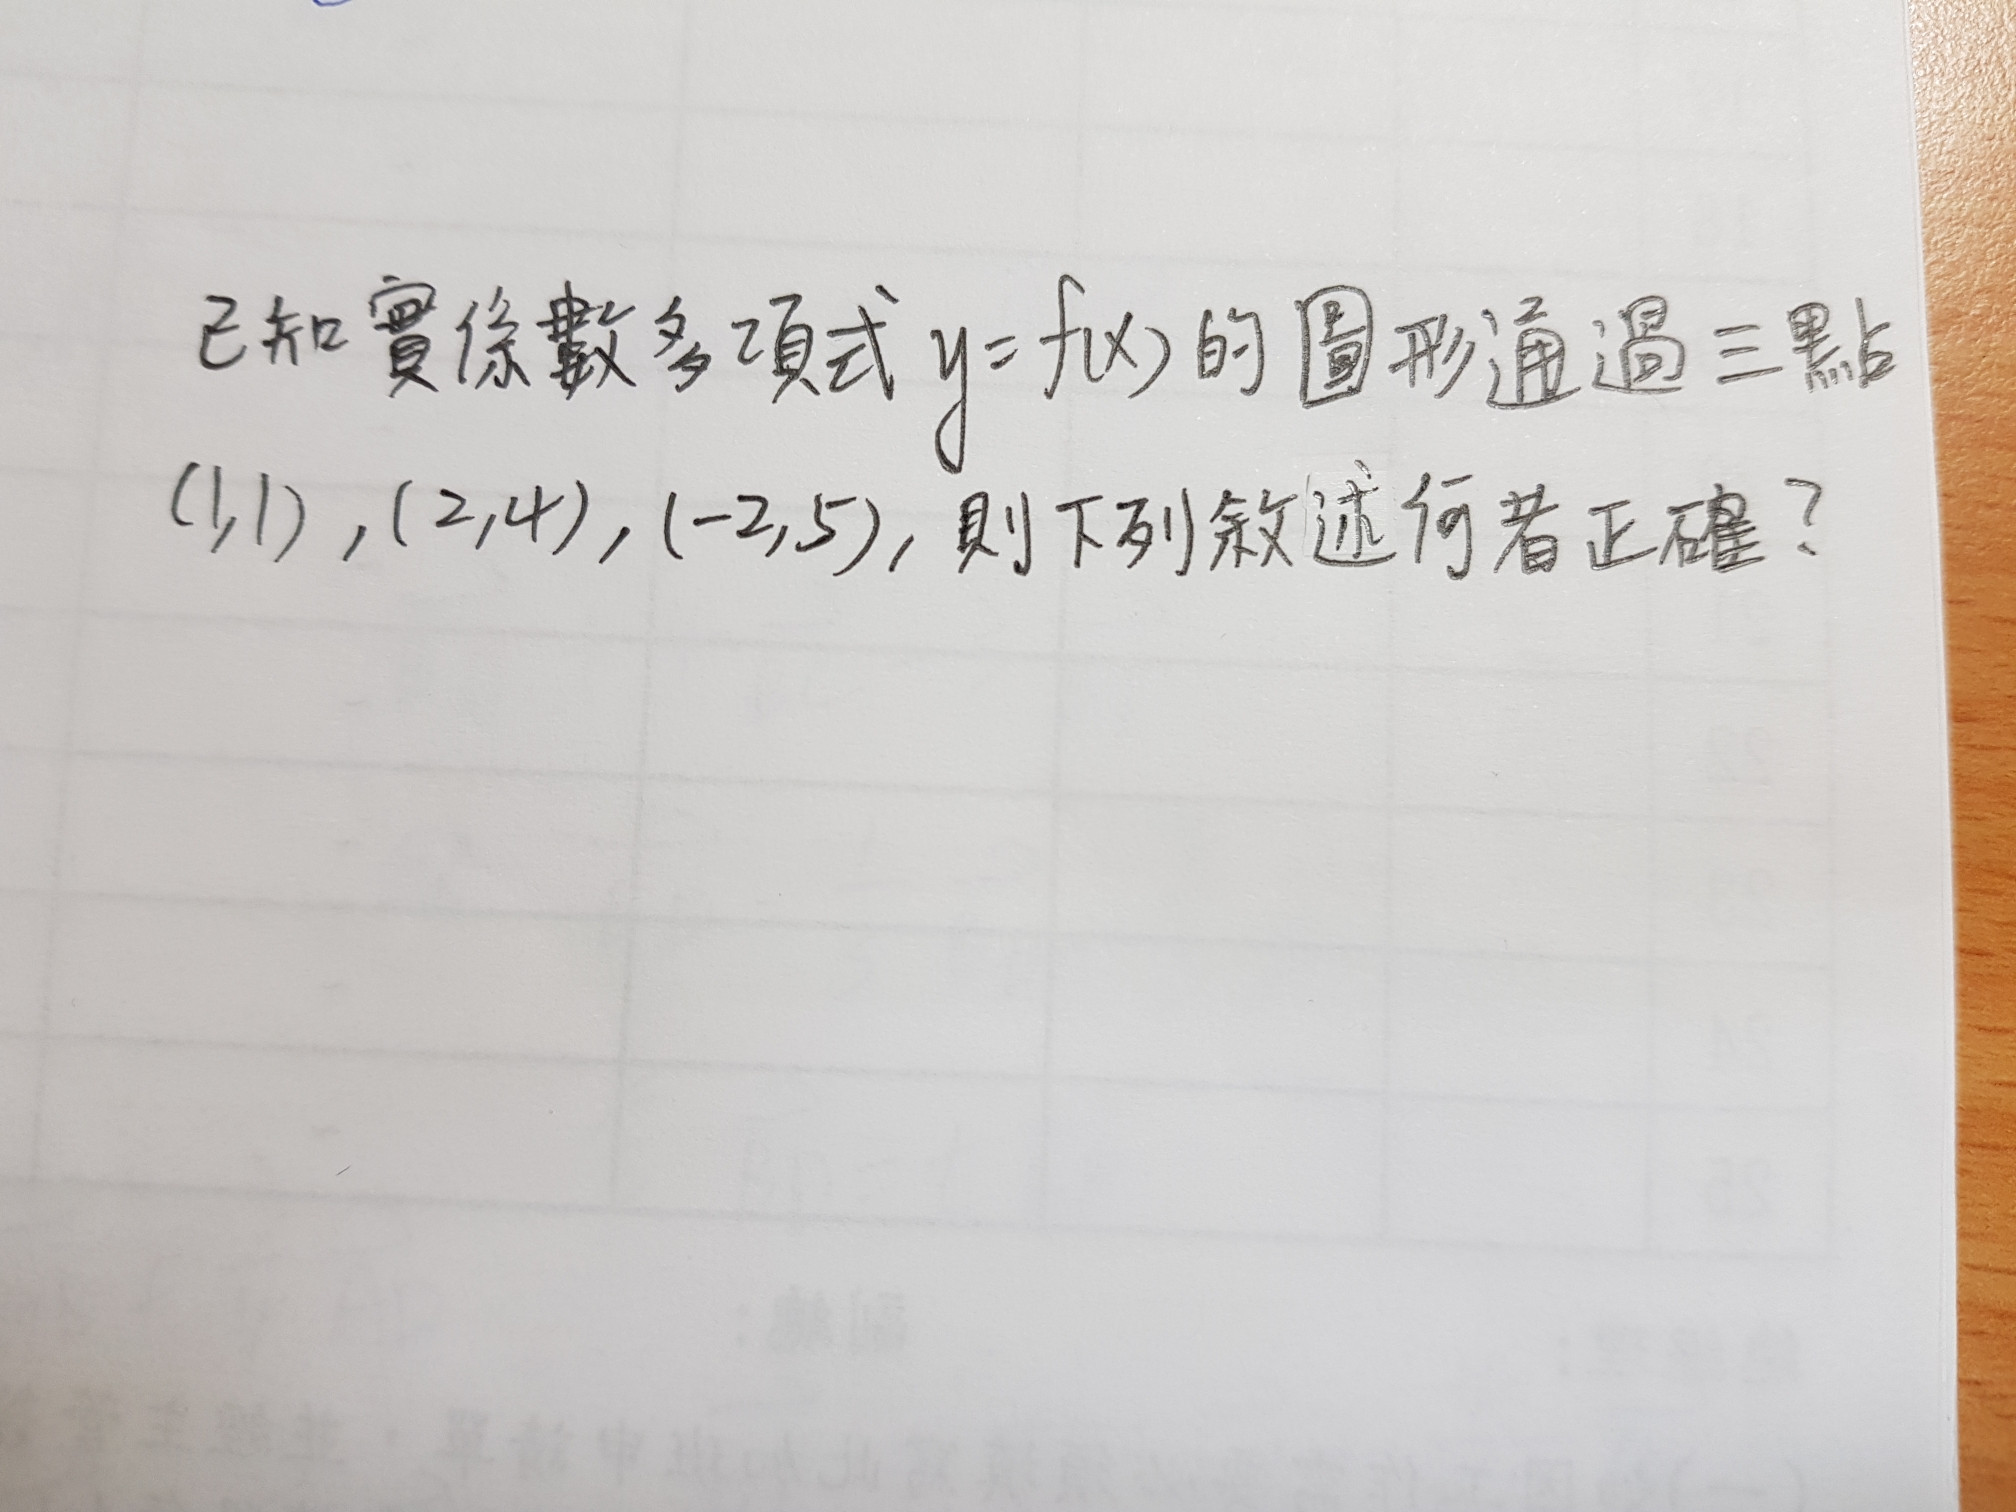 已知實係數多項式 y=f(x) 的圖形通過三點
(1,1),(2,4),(-2,5),則下列敘述何者正確?